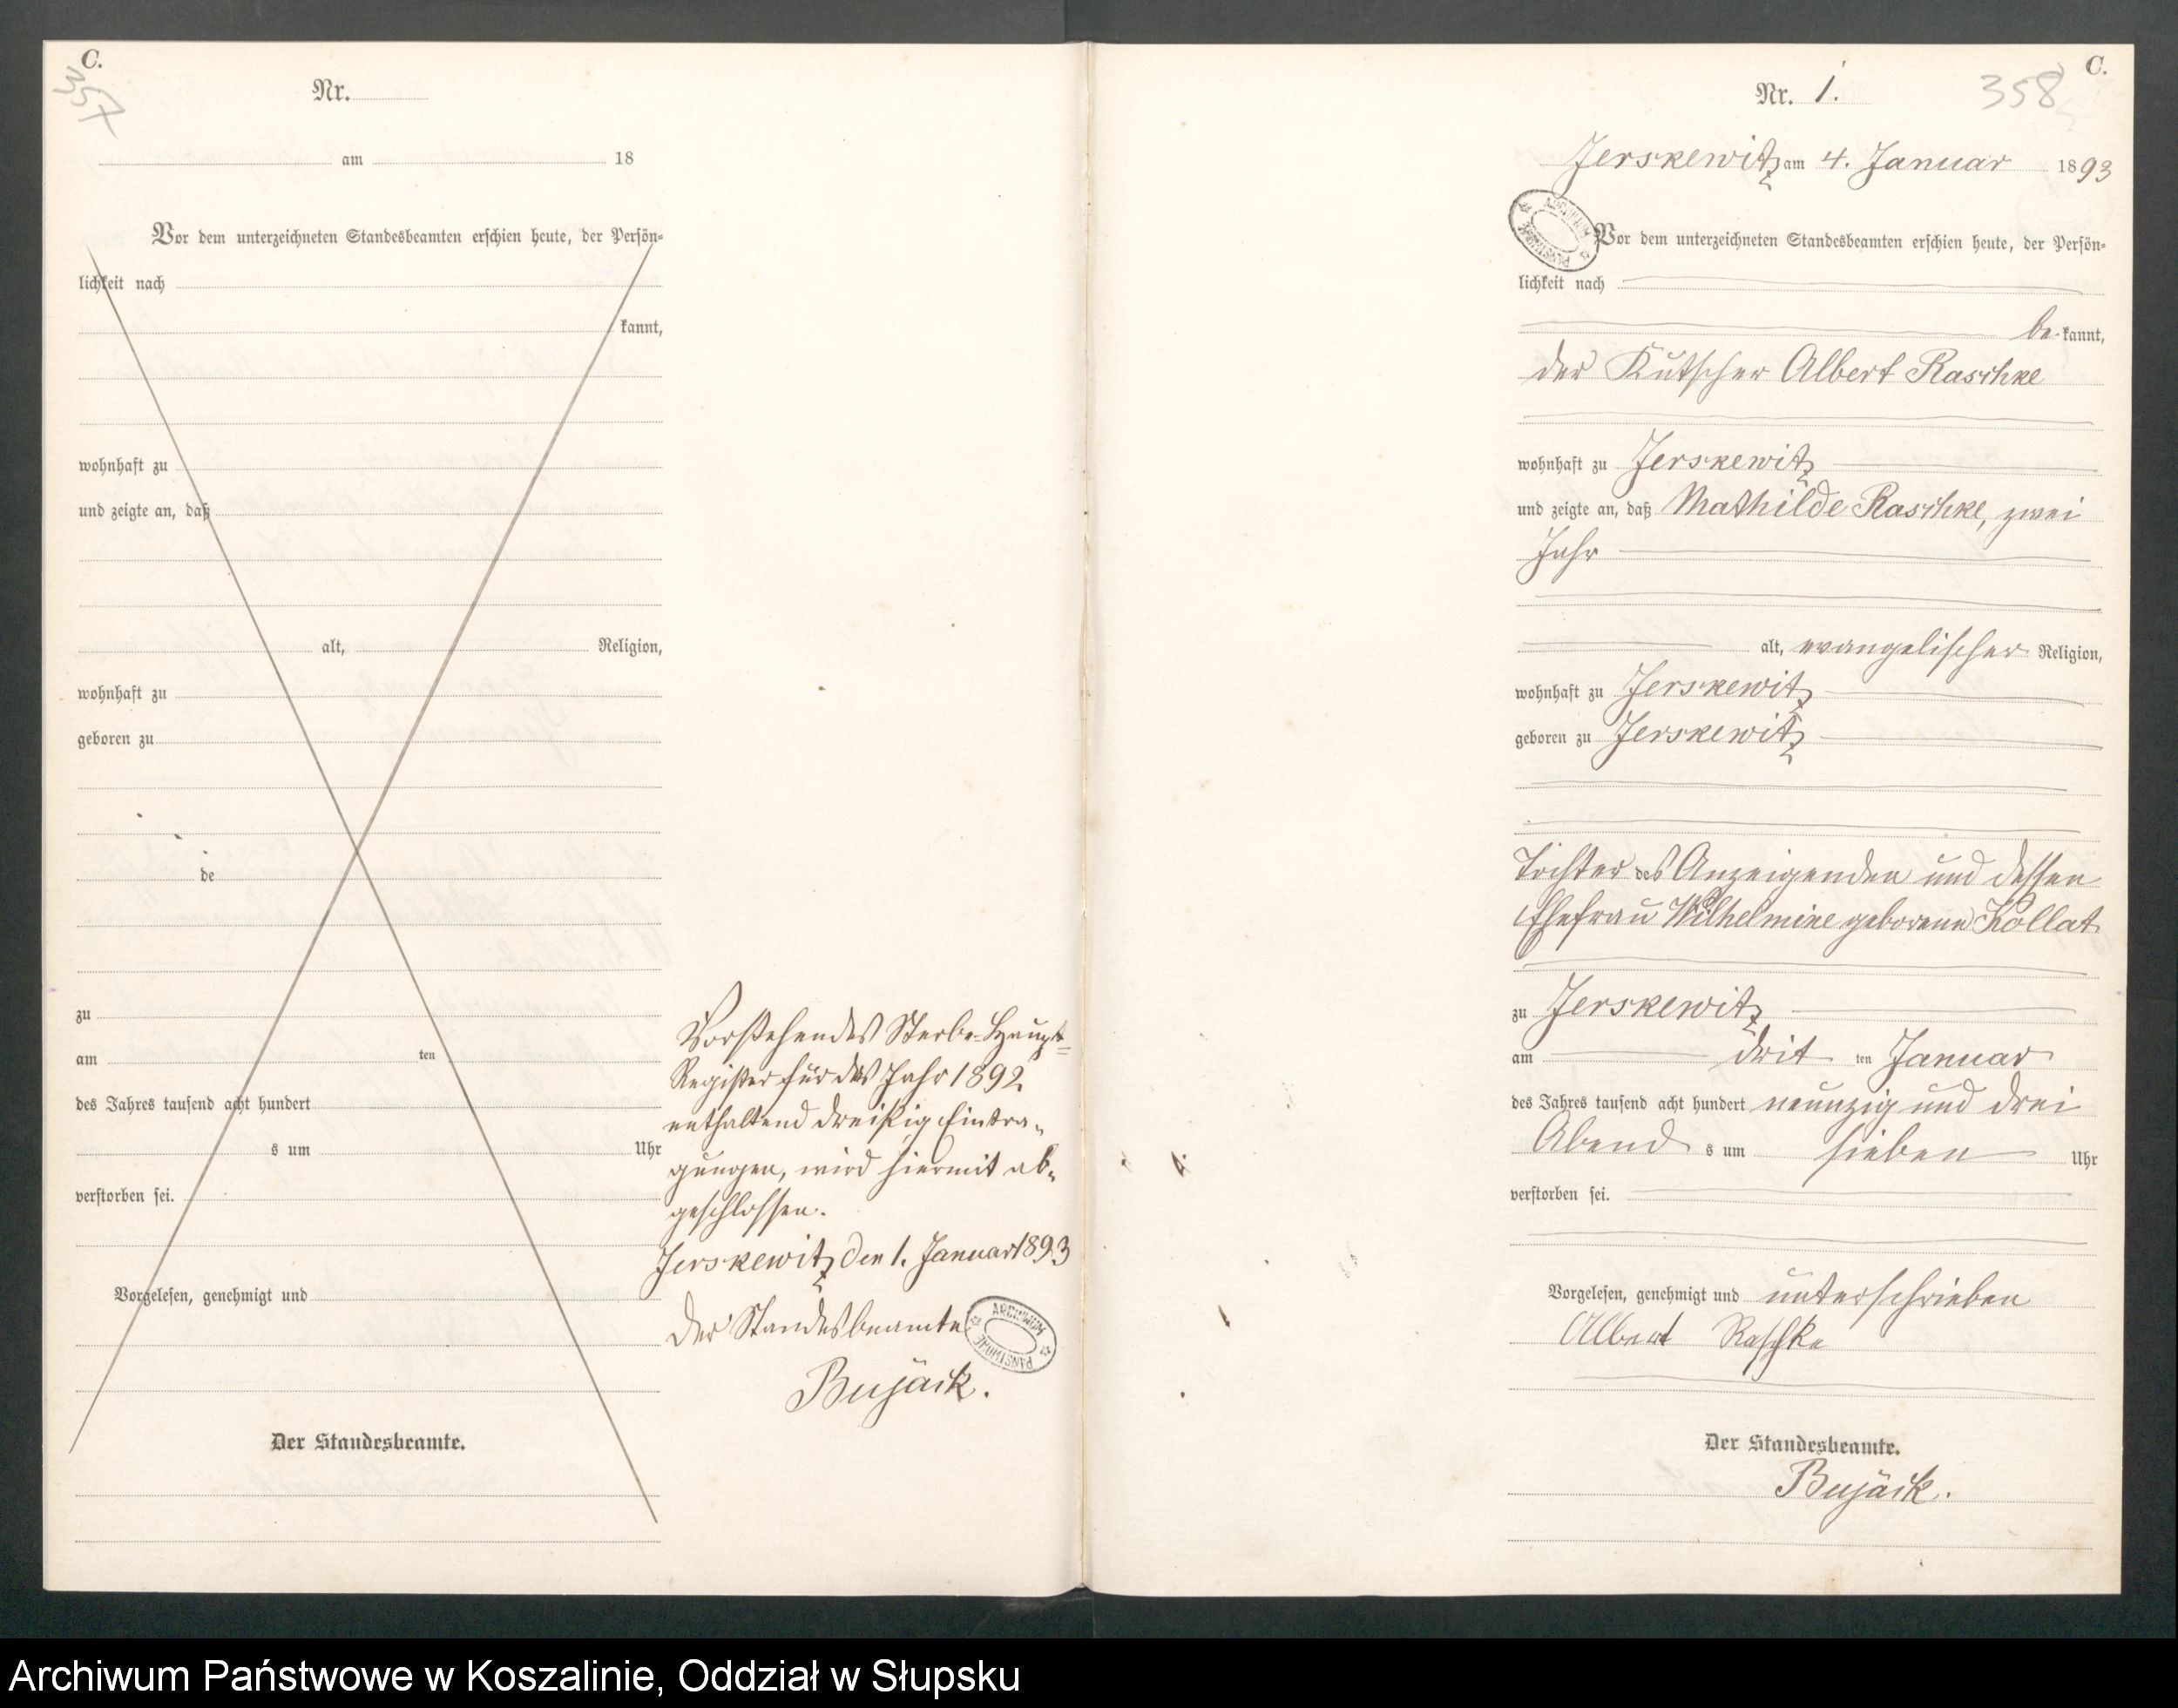 C.
357
Nr.
am 18
Vor dem unterzeichneten Standesbeamten erschien heute, der Persön-
lichkeit nach
kannt,
wohnhaft zu
und zeigte an, daß
alt, Religion,
wohnhaft zu
geboren zu
de
zu
am ten
des Jahres tausend acht hundert
s um Uhr
verstorben sei.
Vorgelesen, genehmigt und
Der Standesbeamte.
Vorstehendes Sterbe-Haupt-
Register für das Jahr 1892
enthaltend dreißig Eintra-
gungen, wird hiermit ab-
geschlossen.
Jerskewitz den 1. Januar 1893
Der Standesbeamte
ARCHIWUM PAŃSTWOWE
Bujack.
C.
358
Nr. 1.
Jerskewitz am 4. Januar 1893
ARCHIWUM PAŃSTWOWE
Vor dem unterzeichneten Standesbeamten erschien heute, der Persön-
lichkeit nach
be kannt,
der Kutscher Albert Raschke
wohnhaft zu Jerskewitz
und zeigte an, daß Mathilde Raschke, zwei
Jahr
alt, evangelischer Religion,
wohnhaft zu Jerskewitz
geboren zu Jerskewitz
Tochter des Anzeigenden und dessen
Ehefrau Wilhelmine geborene Kollat
zu Jerskewitz
am drit ten Januar
des Jahres tausend acht hundert neunzig und drei
Abend s um sieben Uhr
verstorben sei.
Vorgelesen, genehmigt und unterschrieben
Albert Raschke
Der Standesbeamte.
Bujack.
Archiwum Państwowe w Koszalinie, Oddział w Słupsku